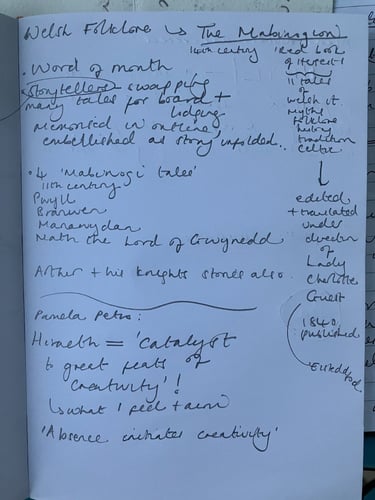 Welsh Folklore → The Mabinogion
14th century 'Red book
of Hergest'
11 tales
of
welsh lit.
myths
folklore
history
tradition
celtic
edited
+ translated
under
direction
of
Lady
Charlotte
Guest
1840.
published
. Word of month
storytellers swapping
many tales for board +
lodging
memorised in outline
embellished as story unfolded..
. 4 'Mabinogi tales'
11th century
Pwyll
Branwen
Manawydan
Math the Lord of Gwynedd
Arthur + his knights stories also.
Pamela Petro:
Hiraeth = 'catalyst
to great feats of
creativity'!
↳ what I feel + aim
'Absence initiates creativity'